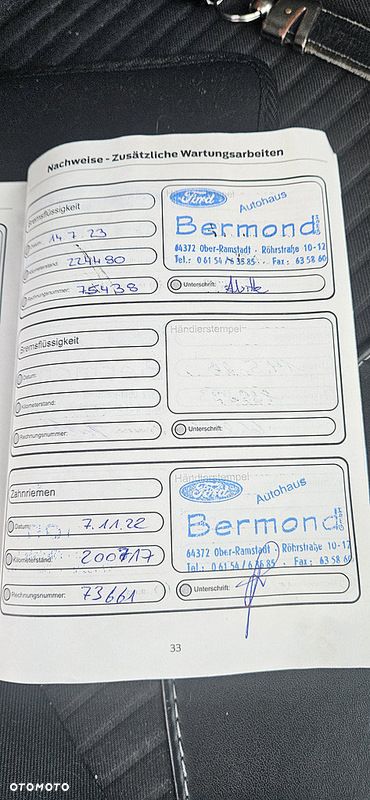 Nachweise - Zusätzliche Wartungsarbeiten
Bremsflüssigkeit
Datum: 14.7.23
Kilometerstand: 224480
Rechnungsnummer: 75438
Ford
Autohaus
Bermond
64372 Ober-Ramstadt · Röhrstraße 10-12
Tel.: 0 61 54 / 6 35 85 · Fax: 63 58 60
Unterschrift:
Bremsflüssigkeit
Datum:
Kilometerstand:
Rechnungsnummer:
Händlerstempel
Unterschrift:
Zahnriemen
Datum: 7.11.22
Kilometerstand: 200717
Rechnungsnummer: 73661
Händlerstempel
Ford
Autohaus
Bermond
64372 Ober-Ramstadt · Röhrstraße 10-12
Tel.: 0 61 54 / 6 35 85 · Fax: 63 58 60
Unterschrift:
33
OTOMOTO